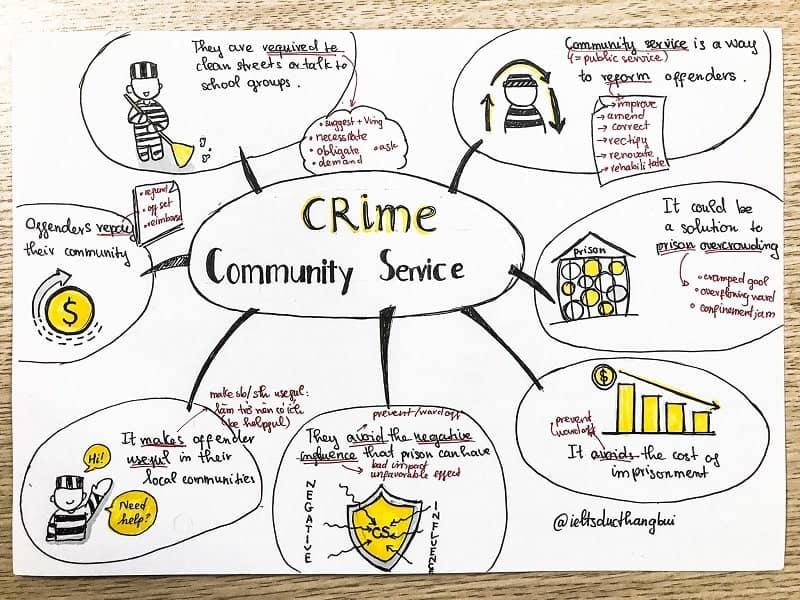 They are required to
clean streets or talk to
school groups.
• suggest + Ving
• necessitate
• obligate • ask
• demand
Community service is a way
(= public service)
to reform offenders.
→ improve
→ amend
→ correct
→ rectify
→ renovate
→ rehabilitate
• refund
• offset
• reimburse
Offenders repay
their community
$
CRime
Community Service
It could be
a solution to
prison overcrowding
• cramped gaol
• overflowing ward
• confinement jam
prison
make sb/sth useful:
làm trở nên có ích
(be helpful)
It makes offender
useful in their
local communities
Hi!
Need
help?
prevent/ward off
They avoid the negative
influence that prison can have
bad impact
unfavorable effect
NEGATIVE
CS
INFLUENCE
$
prevent
ward off
It avoids the cost of
imprisonment
@ieltsducthangbui